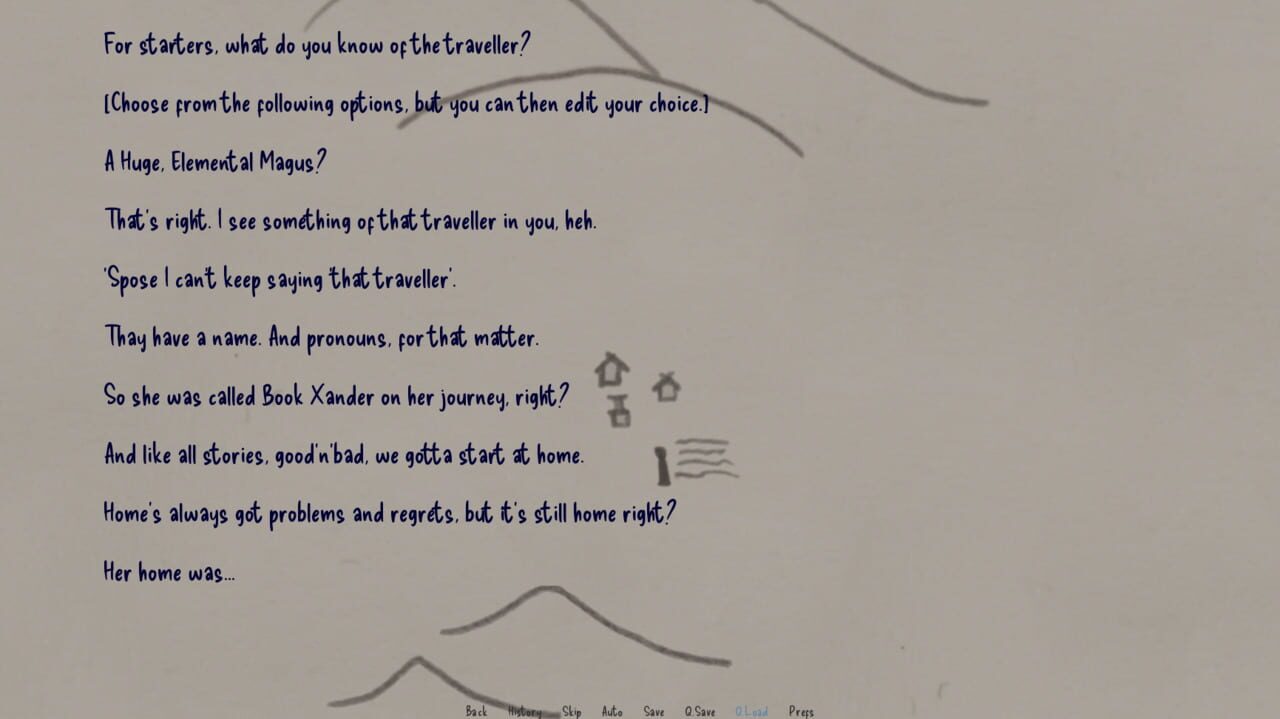 For starters, what do you know of the traveller?
[Choose from the following options, but you can then edit your choice.]
A Huge, Elemental Magus?
That's right. I see something of that traveller in you, heh.
'Spose I can't keep saying 'that traveller'.
Thay have a name. And pronouns, for that matter.
So she was called Book Xander on her journey, right?
And like all stories, good'n'bad, we gotta start at home.
Home's always got problems and regrets, but it's still home right?
Her home was...
Back History Skip Auto Save Q.Save Q.Load Prefs